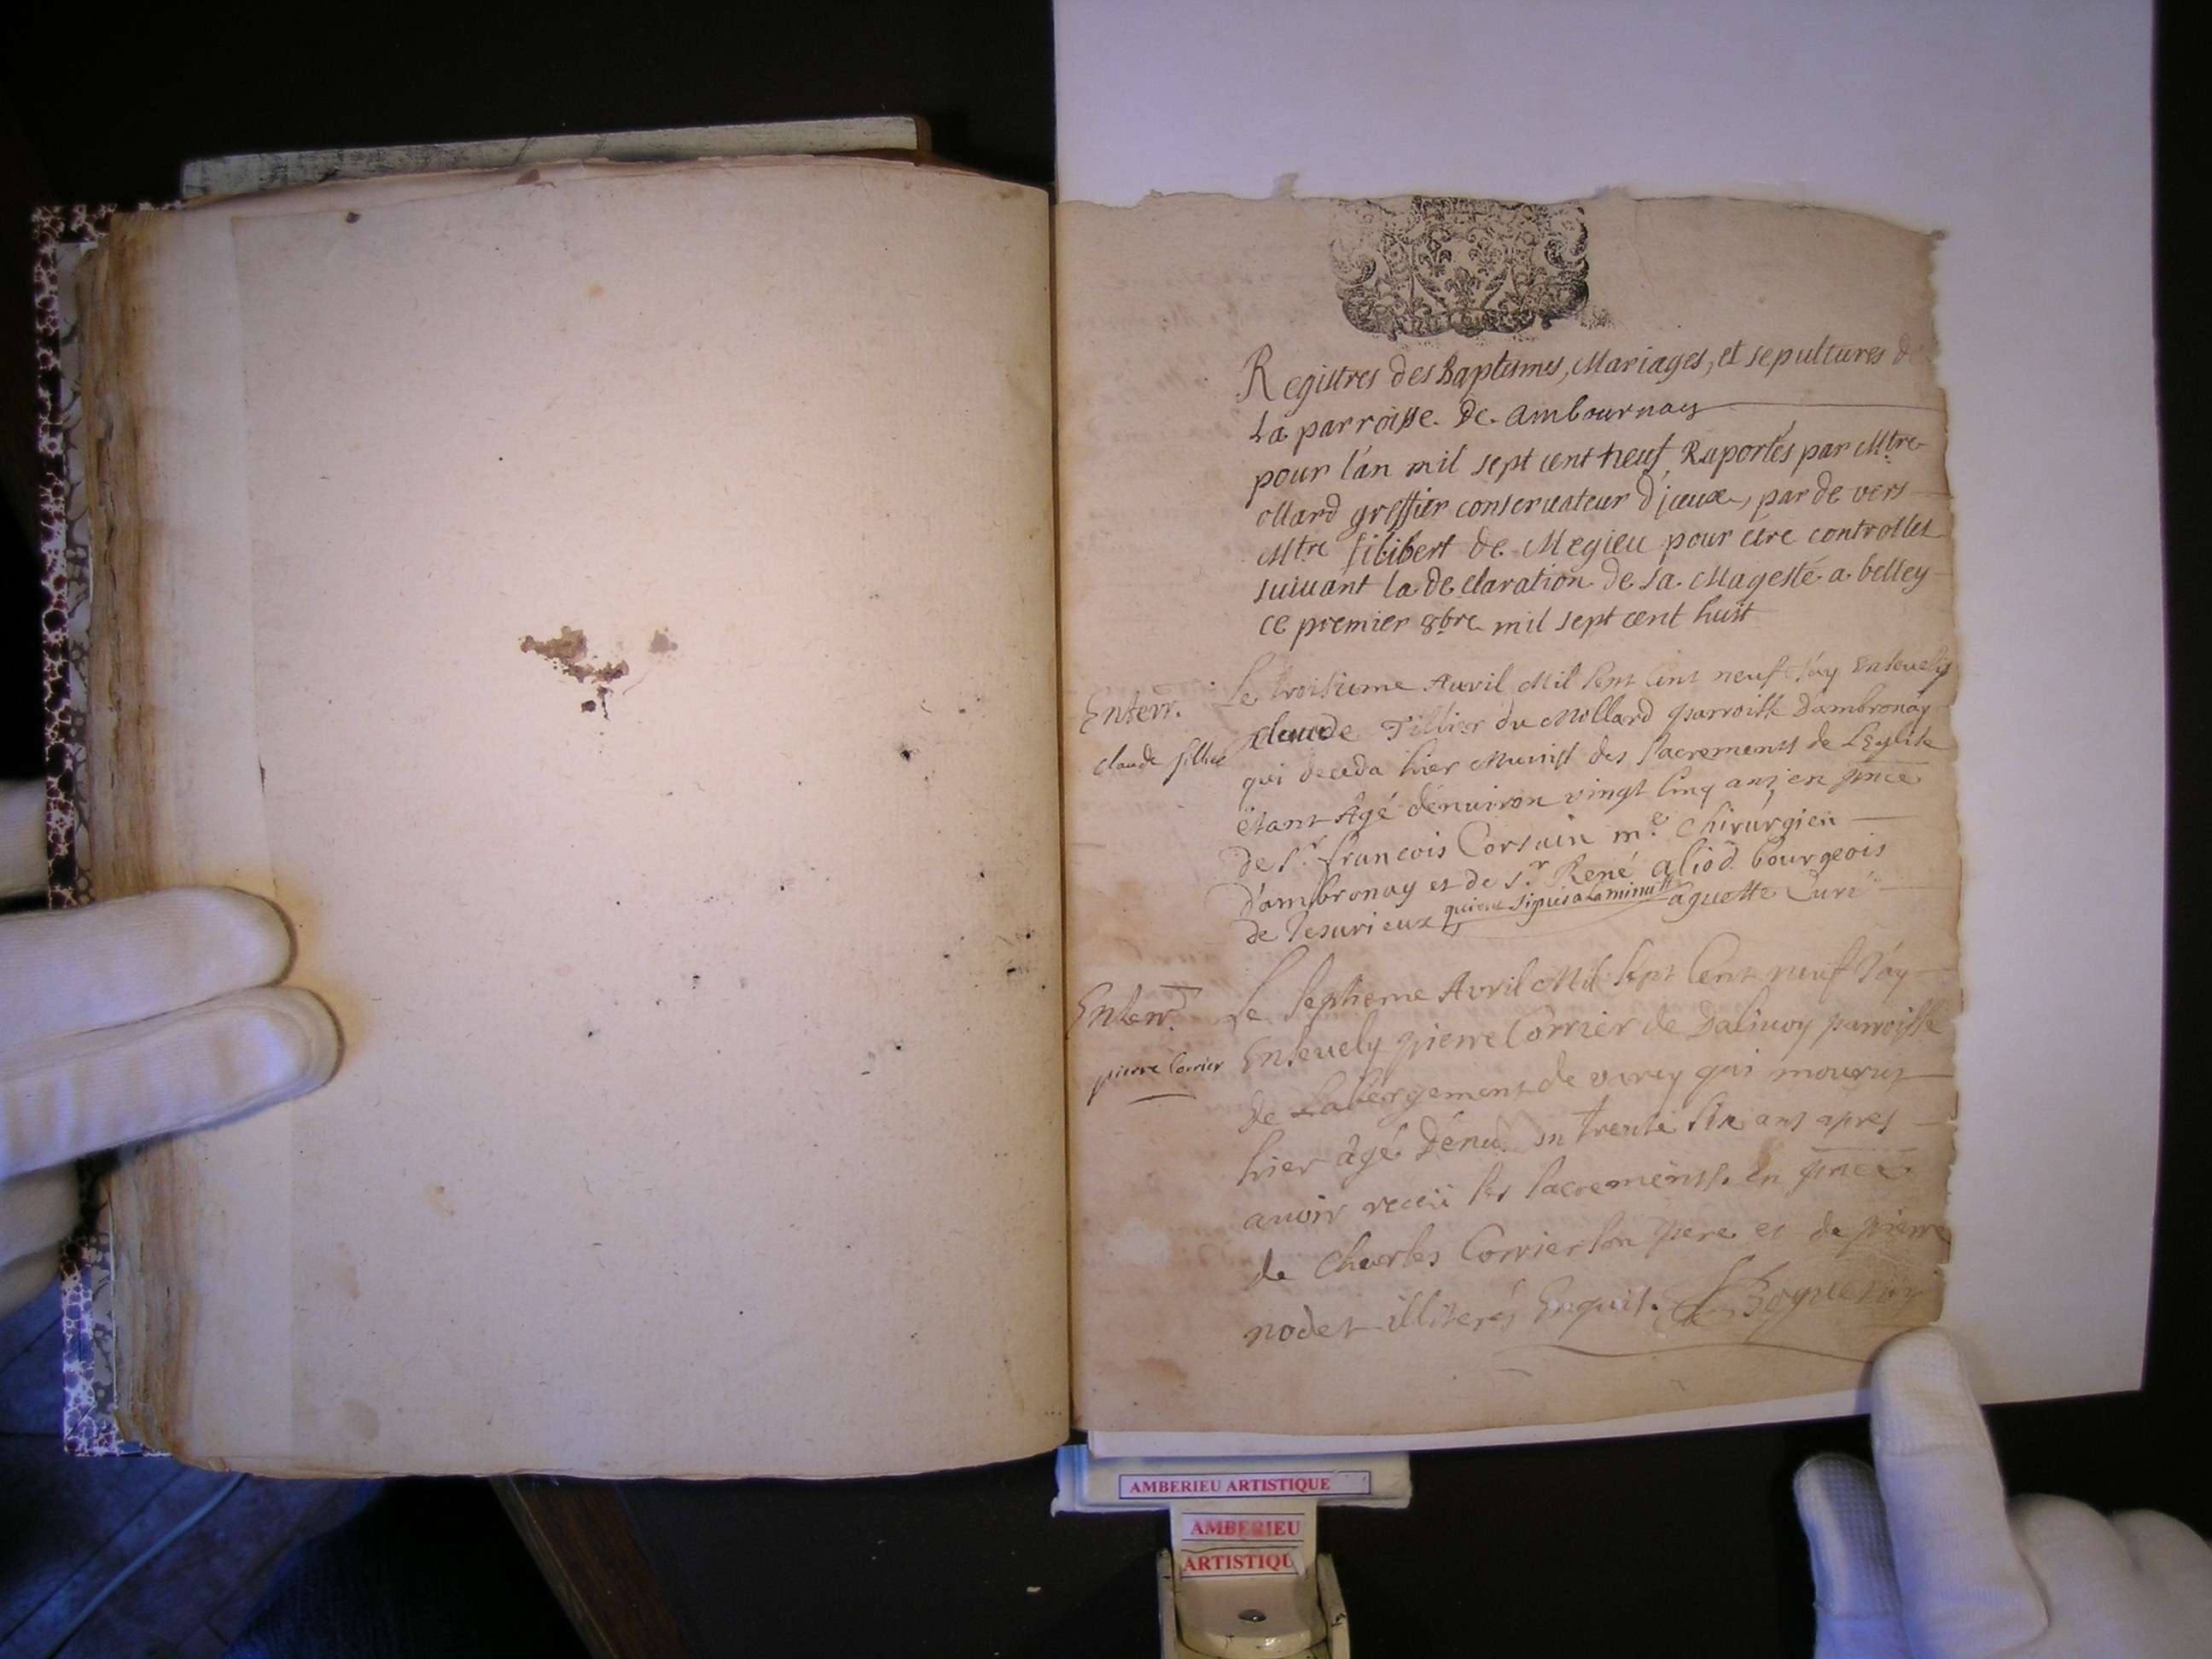 Registres des Baptesmes, Mariages, et sepultures de
La parroisse de ambournay
pour l'an mil sept cent neuf Raportés par Mtre
ollard greffier conservateur d'jceux, par de vers
Mtre filibert de Megieu pour etre controlles
suivant la declaration de sa Magesté a belley
ce premier 8bre mil sept cent huit
Enterr.
claude
Le troisieme Auril Mil sept cent neuf J'ay Enseuely
claude Tillier du Mollard parroisse d'ambronay
qui deceda hier Munist des sacrements de L'Eglise
étant Agé d'enuiron vingt cinq ans, en pnce
de Sr. francois Corsain me. chirurgien
d'ambronay et de Sr. René aliod bourgeois
de Jesurieux qui ont signés a la minutte aguette Curé
Enterr.
pierre Corrier
Le septieme Avril Mil sept Cent neuf J'ay
Enseuely pierre Corrier de Daliuoy parroisse
de Labergement de varey qui mourut
hier âgé d'enui on trente six ans apres
auoir receu les sacrements. en pnce
de Charles Corrier son pere et de pierre
nodet illiterés Enquis. Bogueron
AMBERIEU ARTISTIQUE
AMBERIEU
ARTISTIQU